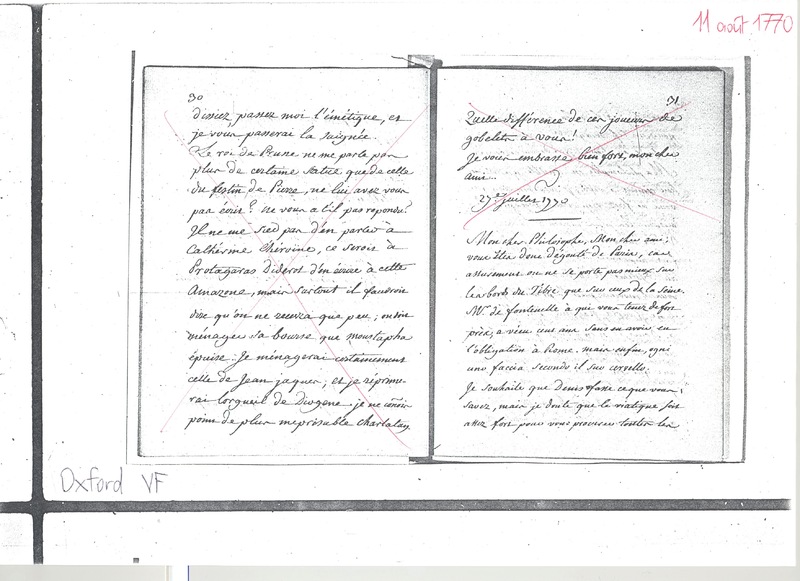 11 août 1770
30
dissiez, passez moi l'émétique, et
je vous passerai la saignée.
Le roi de Prusse ne me parle pas
plus de certaine statue que de celle
du festin de Pierre, ne lui avez vous
pas écrit? ne vous a t'il pas repondu?
Il ne me sied pas d'en parler à
Cathérine l'héroine, ce serois à
Protagoras Diderot d'en écrire à cette
Amazone, mais surtout il faudroit
dire qu'on ne recevra que peu; on doit
ménager sa bourse que moustapha
épuise: Je ménagerai certainement
celle de Jean jaques, et je réprime-
rai l'orgueil de Diogene. je ne connois
point de plus méprisable charlatan.
31
Quelle différence de ces joueurs de
gobelets à vous!
Je vous embrasse bien fort, mon cher
ami.
27e juillet 1770
Mon cher Philosophe, Mon cher ami,
vous êtes donc dégouté de Paris, car
assurement on ne se porte pas mieux sur
les bords du Tibre que sur ceux de la Seine.
Mr. de fontenelle à qui vous tenez de fort
près, a vécu cent ans sans en avoir eu
l'obligation à Rome. mais enfin, ogni
uno faccia secondo il suo cervello.
Je souhaite que Denis fasse ce que vous
savez, mais je doute que le viatique soit
assez fort pour vous procurer toutes les
Oxford VF